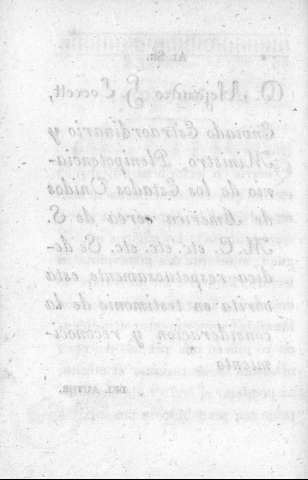 AL SR.
D. Alejandro Everett,
Enviado Extraordinario y
Ministro Plenipotencia-
rio de los Estados Unidos
de América cerca de S.
M. C. etc. etc. etc. Se de-
dica respetuosamente, esta
obrita en testimonio de la
consideracion y reconoci-
miento
DEL AUTOR.